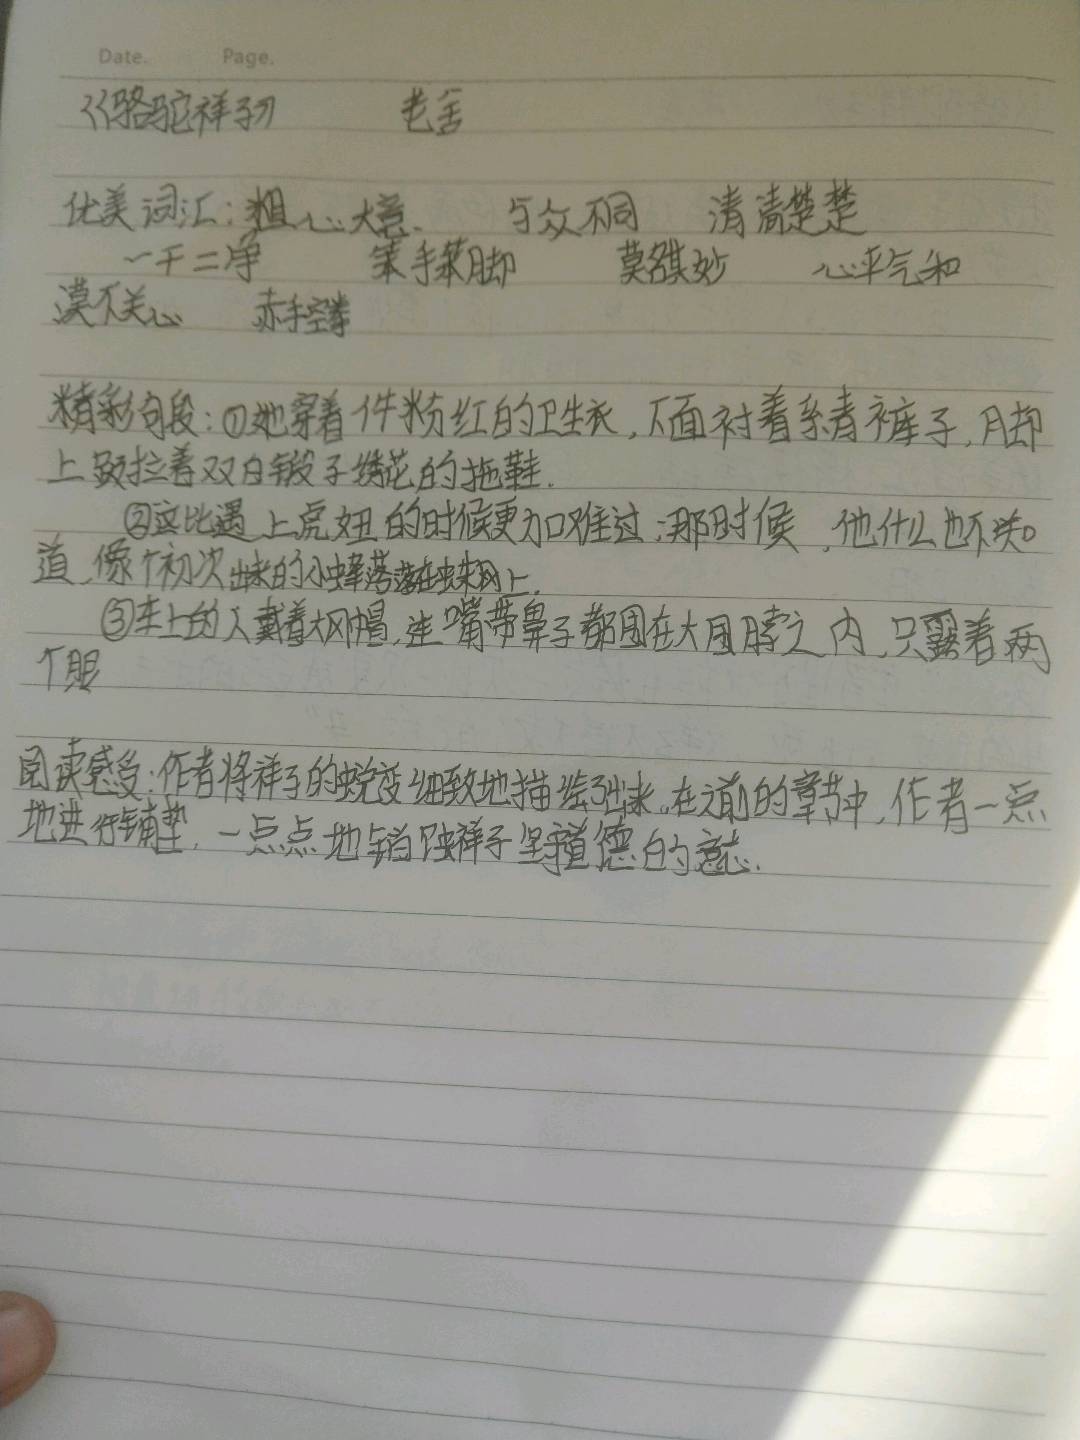 Date. Page.
《骆驼祥子》 老舍
优美词汇：粗心大意. 与众不同 清清楚楚
一干二净 笨手笨脚 莫名其妙 心平气和
漠不关心 赤手空拳
精彩句段：①她穿着件粉红的卫生衣，下面衬着青裤子，脚
上趿拉着双白缎子绣花的拖鞋.
②这比遇上虎妞的时候更加难过；那时候，他什么也不知
道，像个初次出来的小蜂落在蛛网上.
③车上的人戴着大风帽，连嘴带鼻子都围在大围脖之内，只露着两
个眼
阅读感受：作者将祥子的蜕变细致地描绘了出来。在之前的章节中，作者一点
地进行铺垫，一点点地销蚀祥子坚守道德的意志.